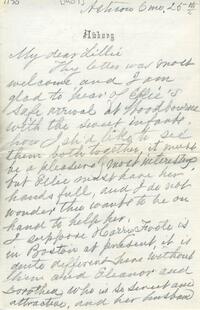 Ashton 6mo, 25th
My dear Lillie
Thy letter was most
welcome and I am
glad to hear of
safe arrival at Woodbourne
with the sweet infants.
how I sh'd like to see
them both together, it must
be a pleasure, most interesting
but must have her
hands full, and I do not
wonder thou wants to be on
hand to help her.
I suppose Harry Foote is
in Boston at present, it is
quite different here without
them and Eleanor and
Dorothea who is so sweet and
attractive, and her husband